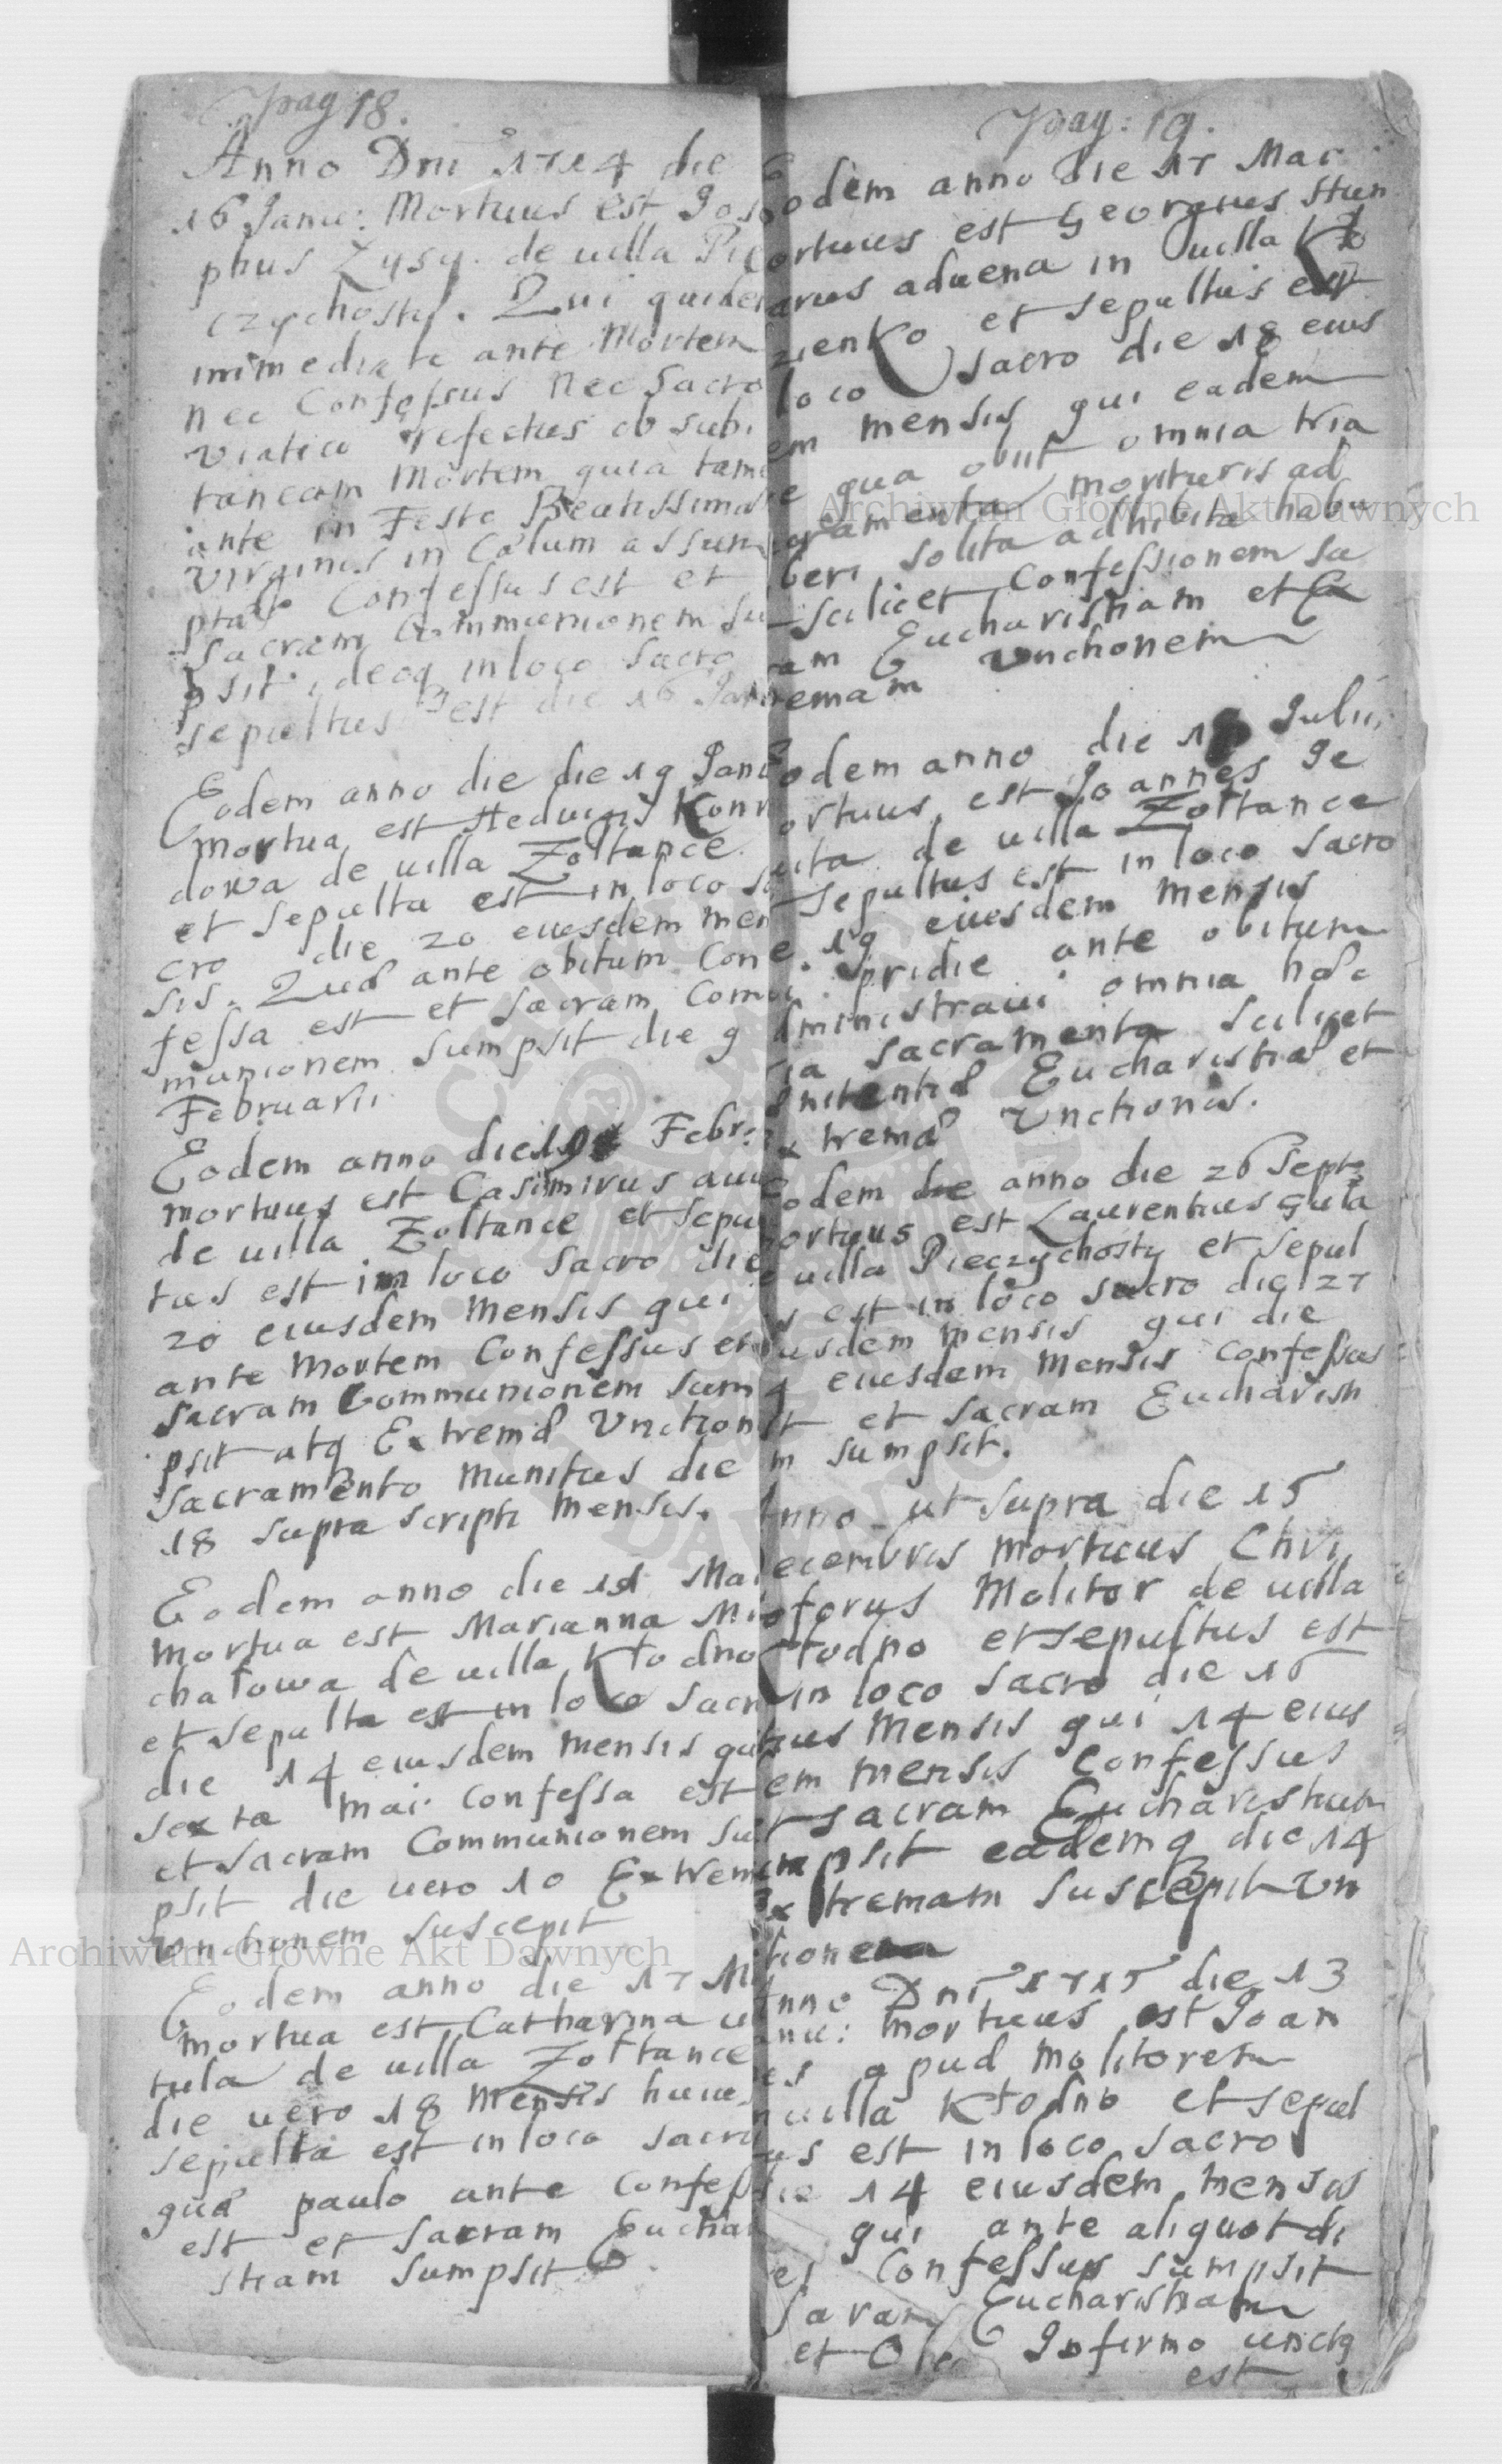 pag 18.
Anno Dni 1714 die
16 Janu: Mortuus est Jose
phus Zysy. de uilla Pie
czychosty. Qui quidem
immediate ante Mortem
nec Confessus nec Sacro
Viatico refectus ob subi
taneam Mortem, quia tame
ante in Festo Beatissimæ
Virginis in Cælum assum
ptæ Confessus est et
Sacram Communionem su
psit, ideoq in loco Sacro
sepultus est die 16 Janu
Eodem anno die die 19 Janu
mortua est Heduigis Kon
dowa de uilla Zołtance
et sepulta est in loco sa
cro die 20 eiusdem men
sis. Quæ ante obitum Con
fessa est et sacram Com
munionem sumpsit die 9
Februarii
Eodem anno die 19 Febr:
mortuus est Casimirus
de uilla Zołtance et sepul
tus est in loco Sacro die
20 eiusdem Mensis qui
ante Mortem Confessus et
Sacram Communionem sum
psit atq Extremæ Unction
Sacramento munitus die
18 supra scripti Mensis.
Eodem anno die Mai
Mortua est Marianna Mi
chałowa de uilla Kłodno
et sepulta est in loco Sacro
die 14 eiusdem mensis quæ
sexta Mai Confessa est
et Sacram Communionem su
psit die uero 10 Extrem
Unctionem suscepit
Eodem anno die 17 M
mortua est Catharina
tula de uilla Zołtance
die uero 18 Mensis huius
sepulta est in loco sacro
quæ paulo ante Confess
est et Sacram Euchar
stiam sumpsit
pag: 19.
Eodem anno die 17 Mar
ortuus est Georgius Hun
arus aduena in uilla Kło
zienko et sepultus est
loco Sacro die 18 eius
em mensis qui eadem
e qua obiit omnia tria
cramenta morituris ad
beri solita adhibita habu
scilicet Confessionem Sa
ram Eucharistiam et Ex
remam Unctionem
Eodem anno die Julii
ortuus est Joannes Je
uita de uilla Zołtance
sepultus est in loco sacro
e. 19 eiusdem Mensis
pridie ante obitum
dministraui omnia hæc
ia sacramenta scilicet
nitentiæ Eucharistiæ et
xtremæ Unctionis.
Eodem anno die 26 Sept:
ortuus est Laurentius Guła
e uilla Pieczychosty et sepul
s est in loco sacro die 27
usdem mensis qui die
4 eiusdem Mensis Confessus
t et Sacram Euchariti
m sumpsit.
Anno ut supra die 15
ecembris mortuus Chri
oforus Molitor de uilla
Kłodno et sepultus est
in loco Sacro die 16
ius Mensis qui 14 eius
em mensis Confessus
t sacram Eucharistiam
mpsit eademq die 14
Extremam suscepit Un
tionem
Anno Dni 1715 die 13
anu: mortuus est Joan
es apud Molitorem
n uilla Kłodno et sepul
us est in loco sacro
die 14 eiusdem mensis
qui ante aliquot di
es Confessus sumpsit
Saram Eucharistiam
et Oleo Infirmo unctq
est
Archiwum Główne Akt Dawnych
Archiwum Główne Akt Dawnych